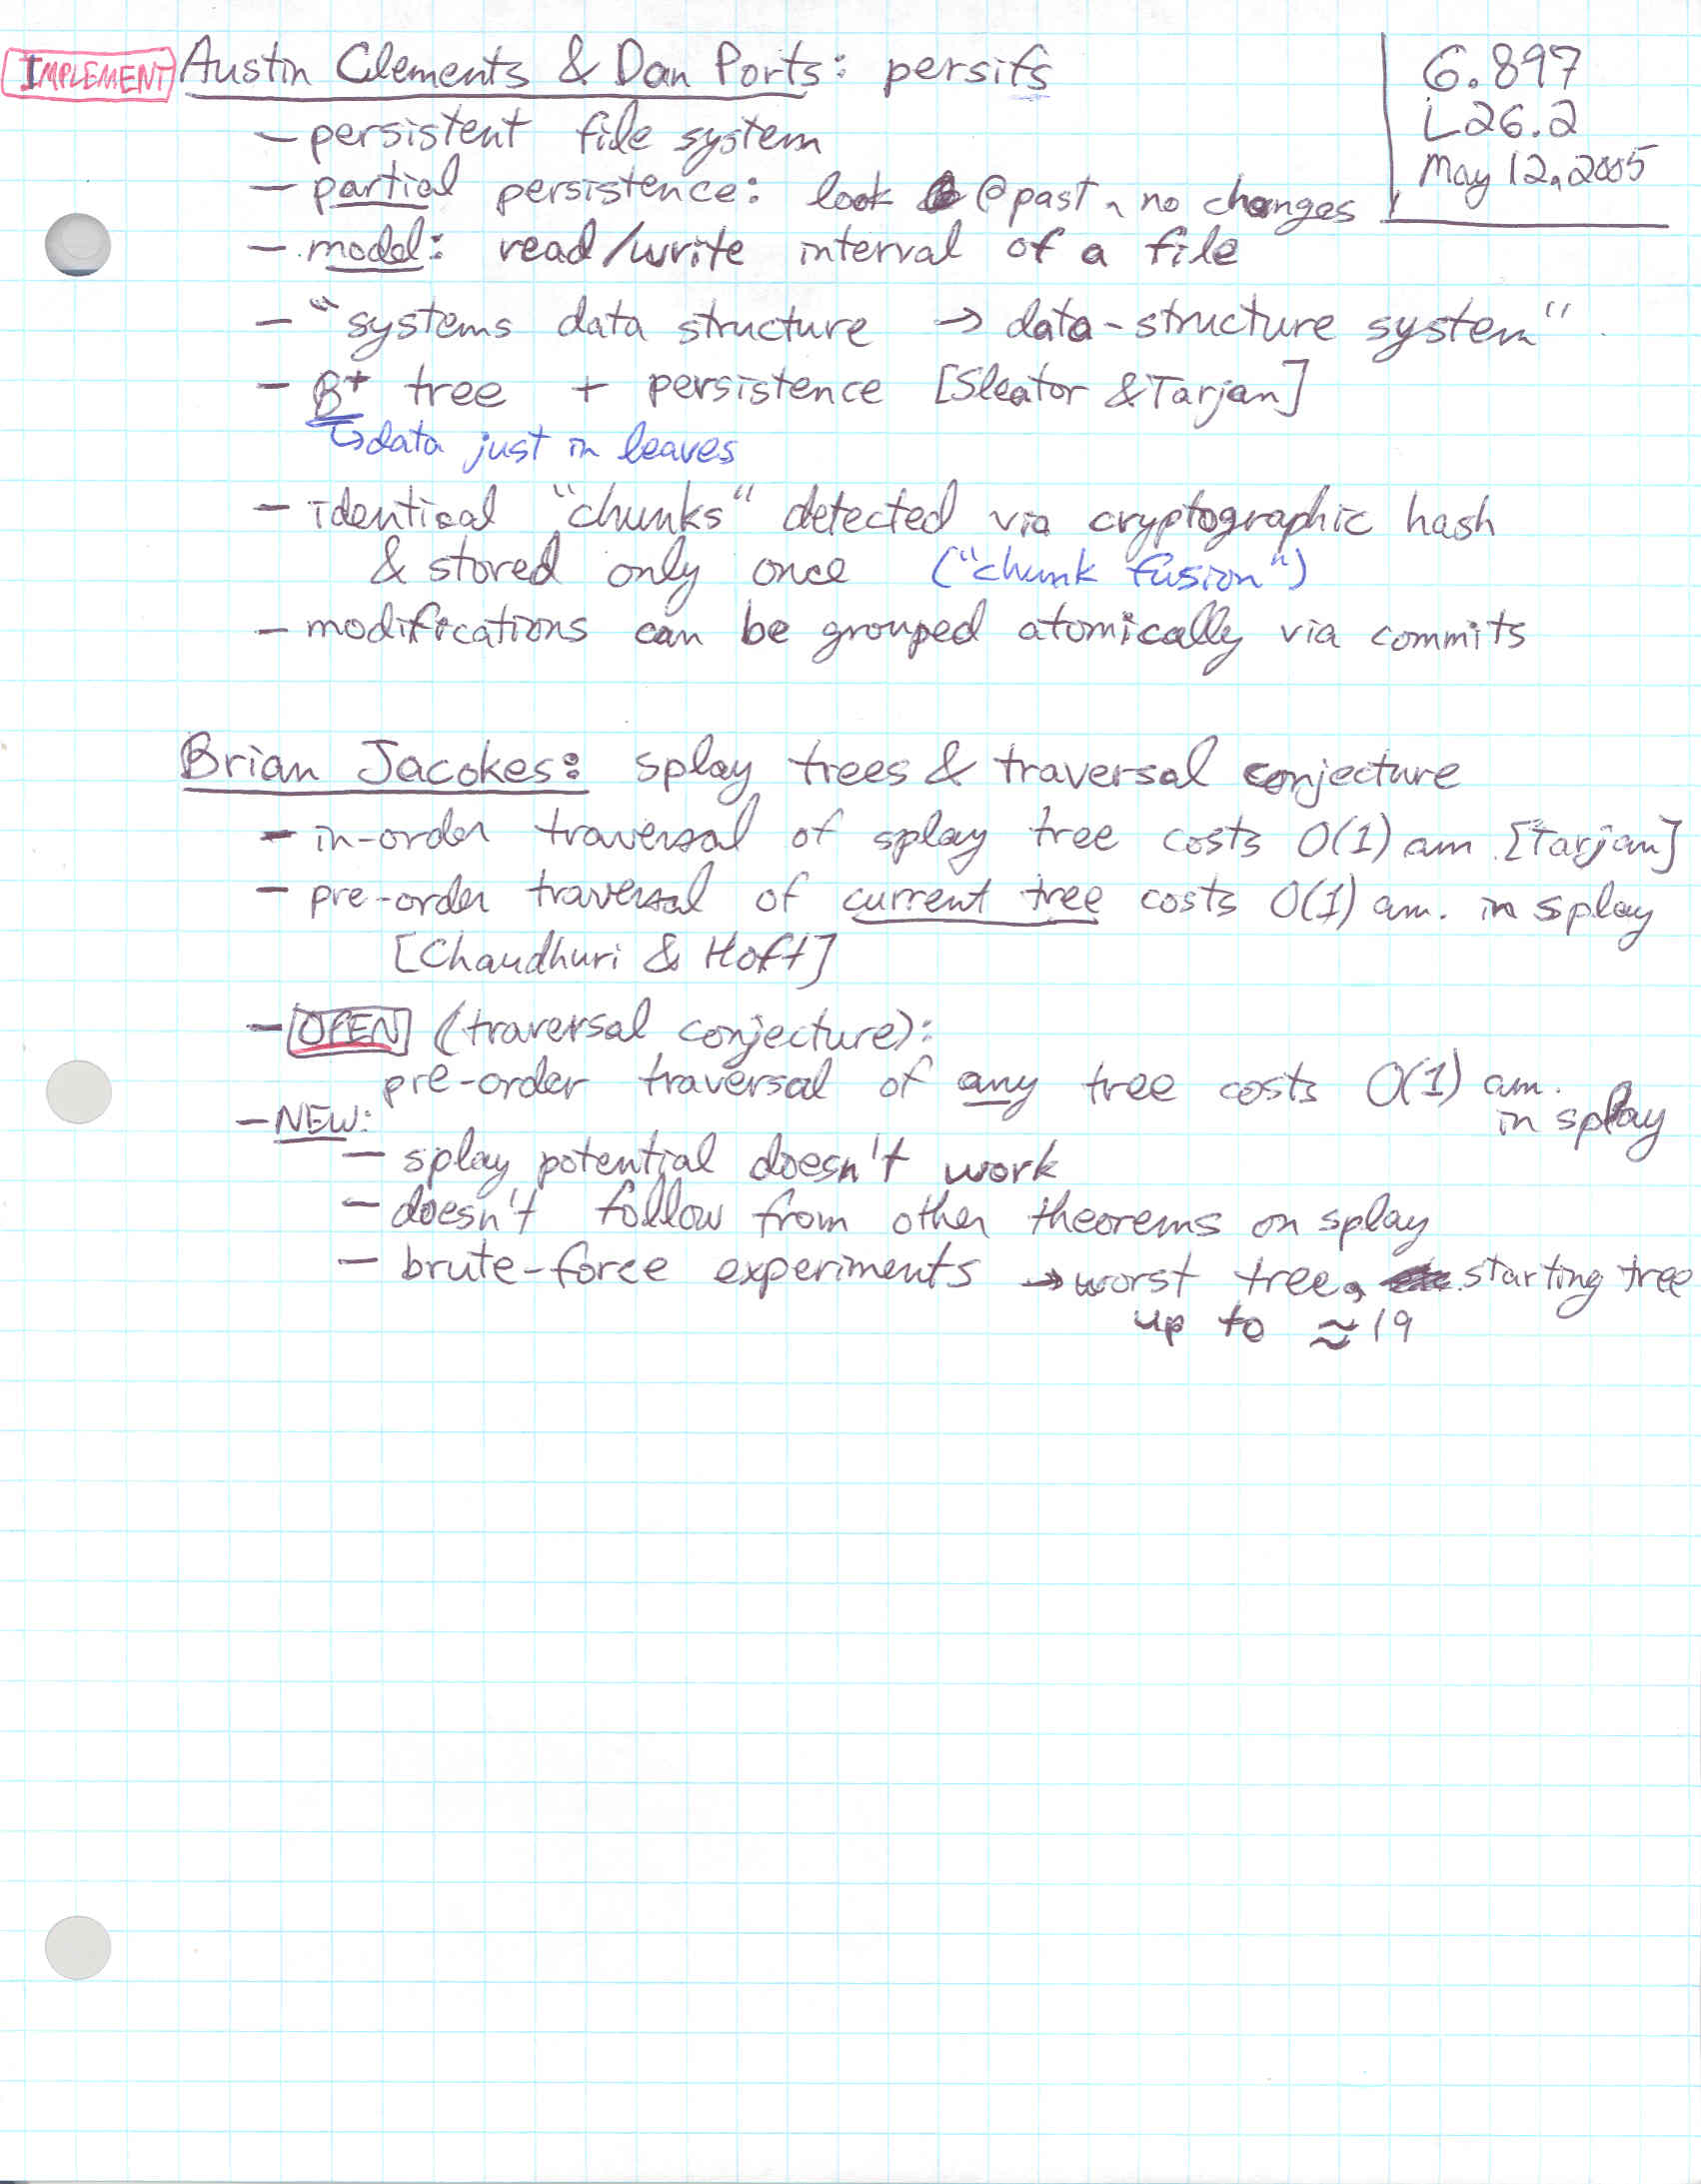 IMPLEMENT Austin Clements & Dan Ports: persifs
6.897
L26.2
May 12, 2005
– persistent file system
– partial persistence: look @ past, no changes
– model: read/write interval of a file
– "systems data structure → data-structure system"
– B+ tree + persistence [Sleator & Tarjan]
↳ data just in leaves
– identical "chunks" detected via cryptographic hash
& stored only once ("chunk fusion")
– modifications can be grouped atomically via commits
Brian Jacokes: splay trees & traversal conjecture
– in-order traversal of splay tree costs O(1) am. [Tarjan]
– pre-order traversal of current tree costs O(1) am. in splay
[Chaudhuri & Hoft]
– OPEN (traversal conjecture):
pre-order traversal of any tree costs O(1) am.
in splay
– NEW:
– splay potential doesn't work
– doesn't follow from other theorems on splay
– brute-force experiments → worst tree, starting tree
up to ≈ 19